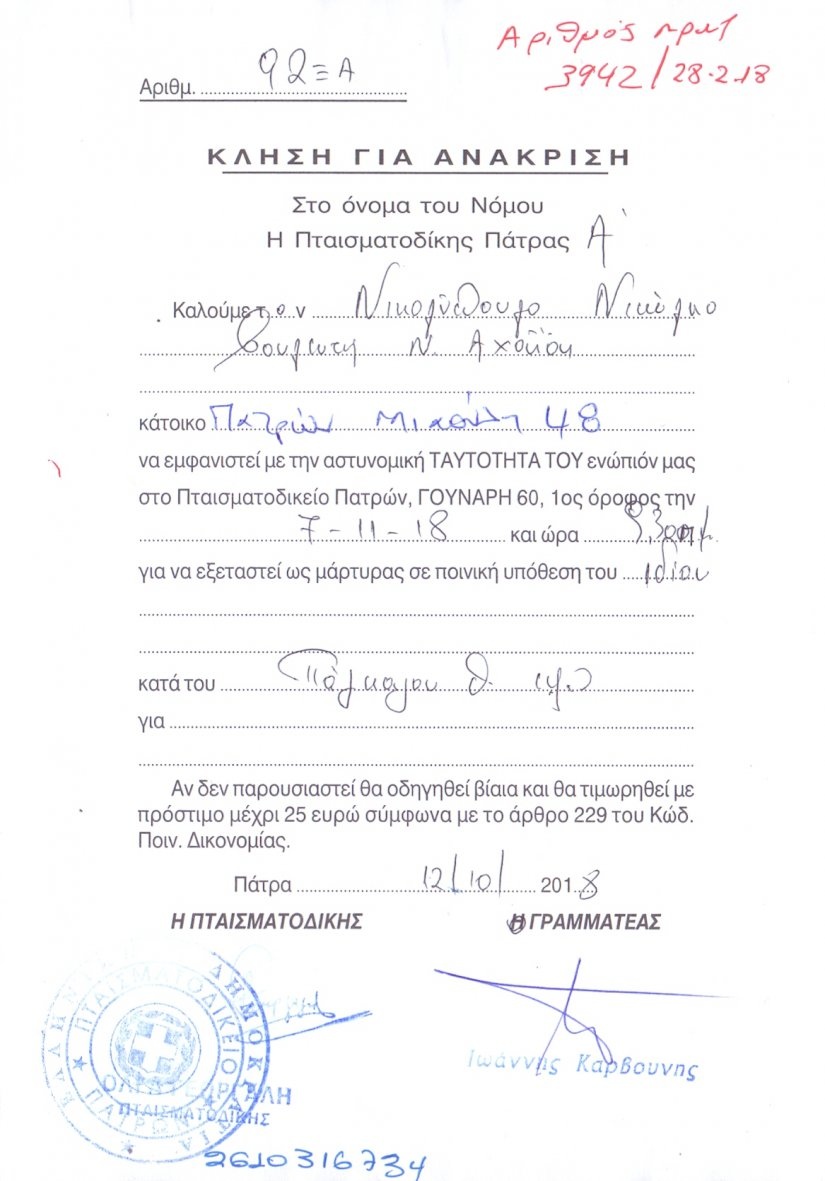 Αριθμός πρωτ
3942/28-2-18
Αριθμ. 92ΞΑ
ΚΛΗΣΗ ΓΙΑ ΑΝΑΚΡΙΣΗ
Στο όνομα του Νόμου
Η Πταισματοδίκης Πάτρας Α'
Καλούμε τ.ο.ν Νικολόπουλο Νικόλαο
Βουλευτή Ν. Αχαΐας
κάτοικο Πατρών Μιαούλη 48
να εμφανιστεί με την αστυνομική ΤΑΥΤΟΤΗΤΑ ΤΟΥ ενώπιόν μας
στο Πταισματοδικείο Πατρών, ΓΟΥΝΑΡΗ 60, 1ος όροφος την
7-11-18 και ώρα
για να εξεταστεί ως μάρτυρας σε ποινική υπόθεση του ιδίου
κατά του Πάγκαλου Θ.
για
Αν δεν παρουσιαστεί θα οδηγηθεί βίαια και θα τιμωρηθεί με
πρόστιμο μέχρι 25 ευρώ σύμφωνα με το άρθρο 229 του Κώδ.
Ποιν. Δικονομίας.
Πάτρα 12/10/ 2018
Η ΠΤΑΙΣΜΑΤΟΔΙΚΗΣ Ο ΓΡΑΜΜΑΤΕΑΣ
ΕΛΛΗΝΙΚΗ ΔΗΜΟΚΡΑΤΙΑ
ΠΤΑΙΣΜΑΤΟΔΙΚΕΙΟ ΠΑΤΡΩΝ
Ιωάννης Καρβουνης
ΠΤΑΙΣΜΑΤΟΔΙΚΗΣ
2610316734